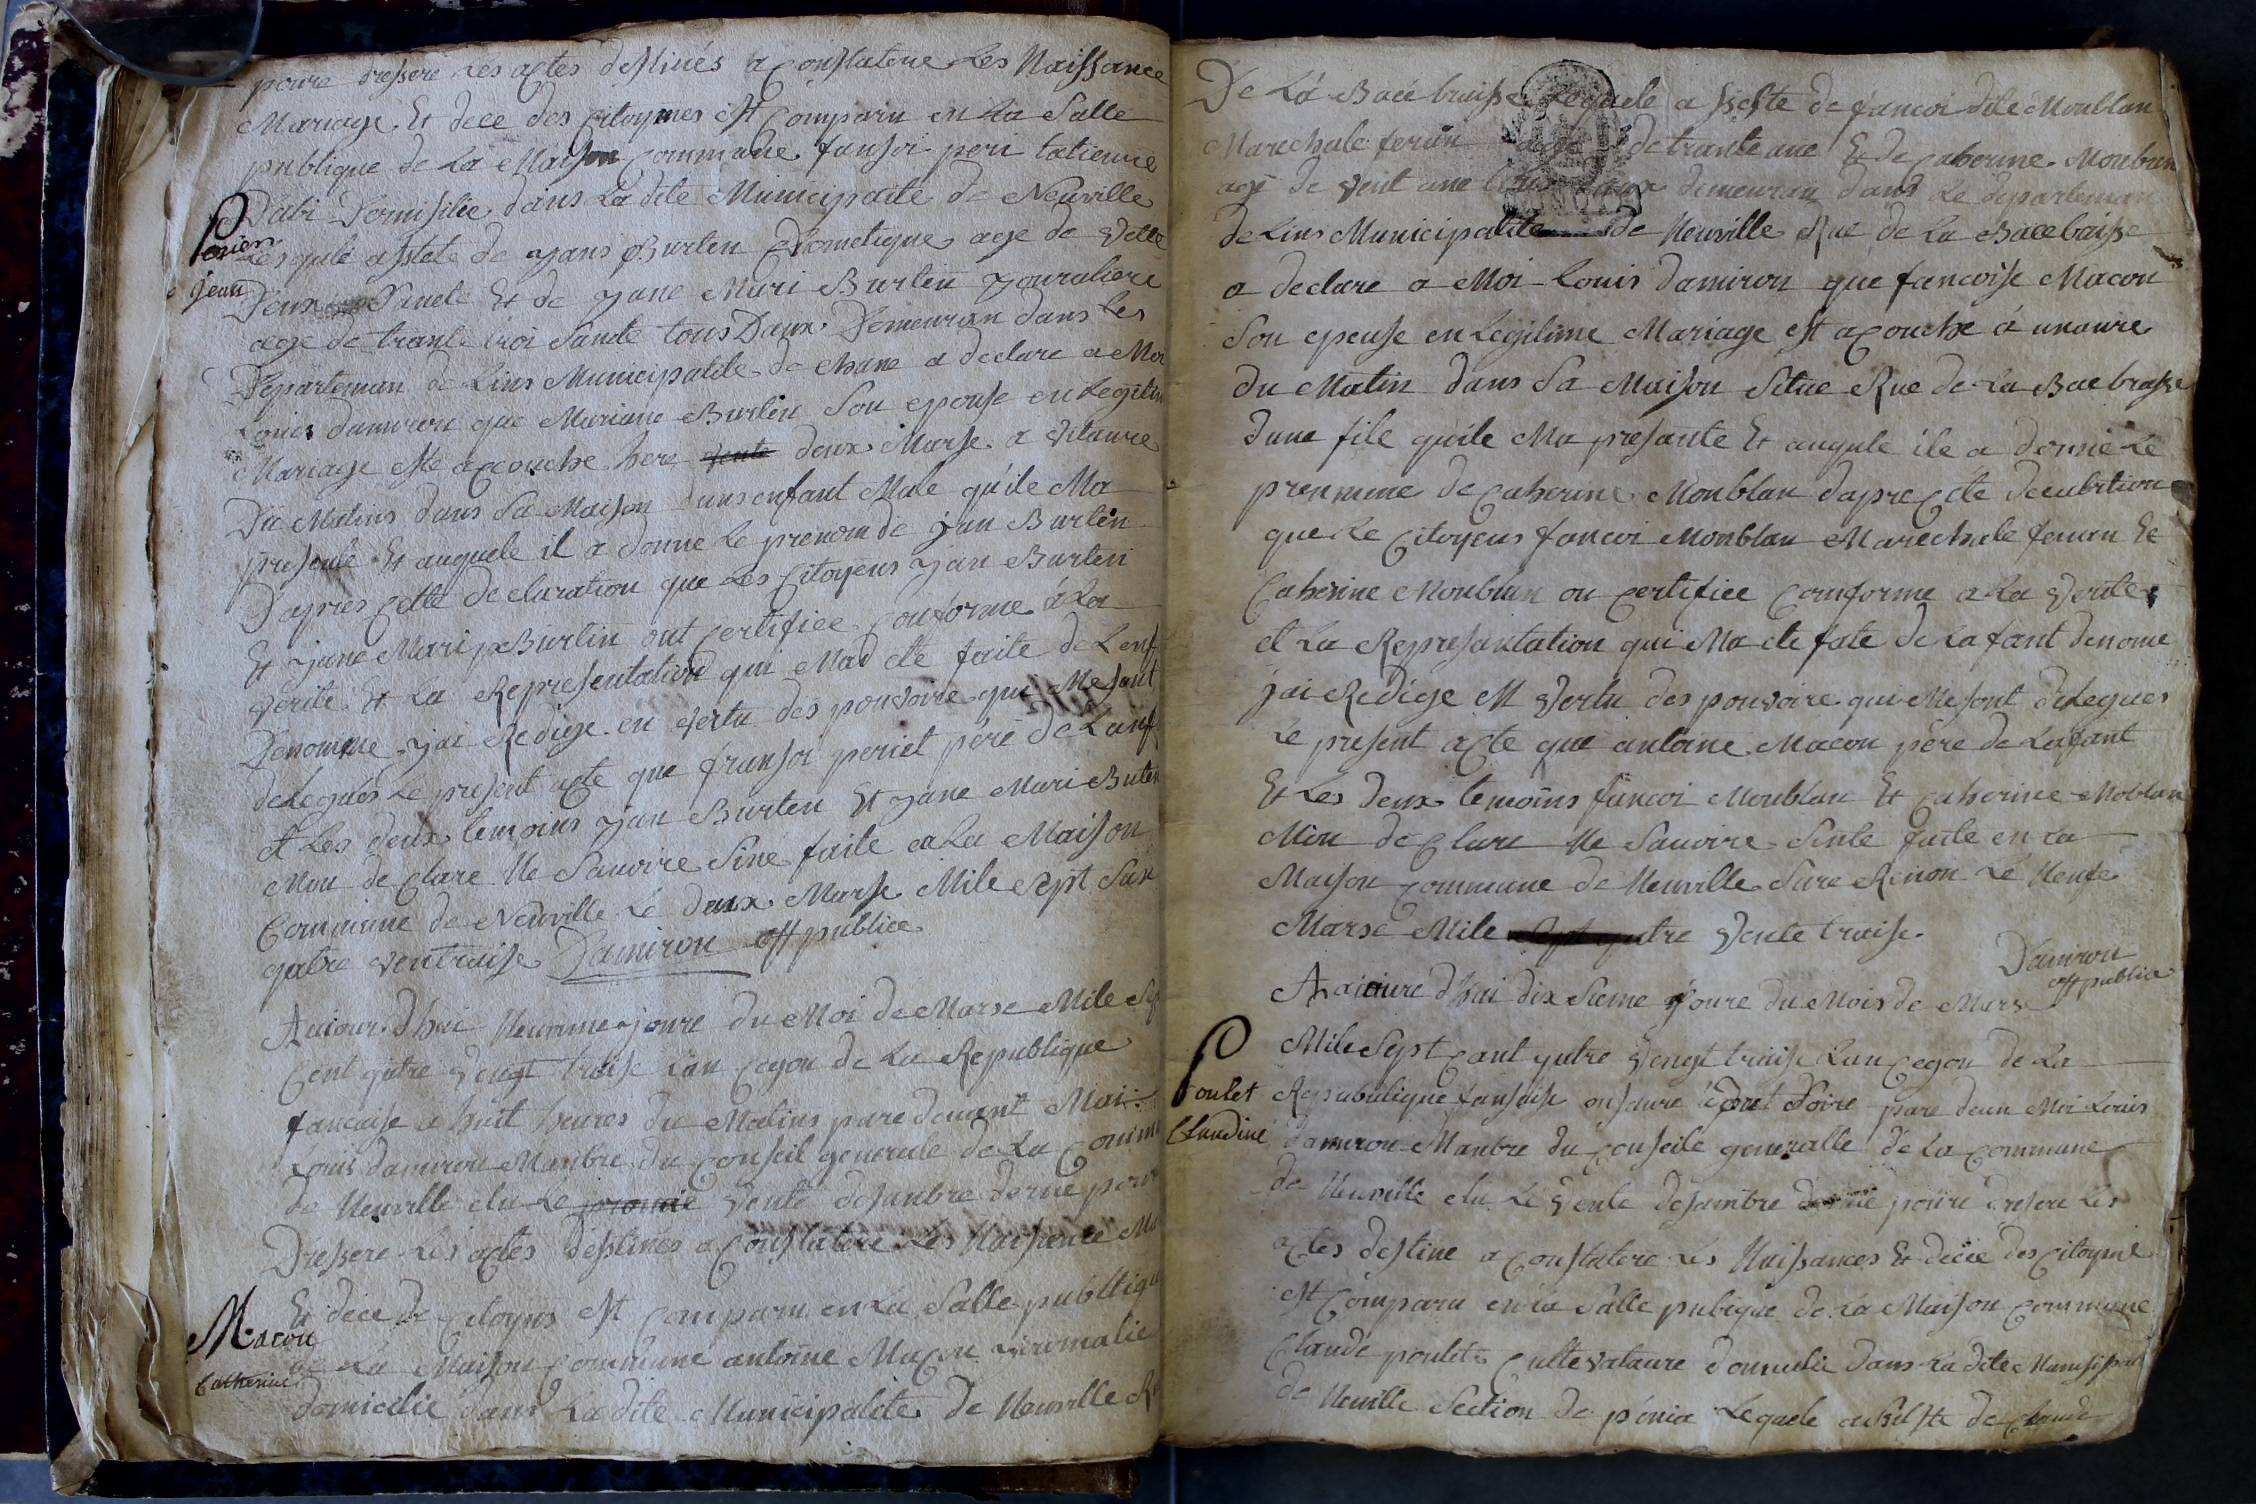 poure dressere les actes destinés a Constatere Les Naissance
Mariage Et dece des citoymes est Comparu en La Salle
publique de La Maison Commune fansoi peri tatienne
Dabi Domisilie dans La dite Municipaite de Neuville
Perier
Lesquele assete de yans Burten Dometique age de
Jean
Deux Et de yane Mari Burten yournaliere
age de trante troi Sante tous Daux Demeuran dans les
Departeman de Lins Municipalite de Chane a declare a Moi
Louis damiron que Mariane Burten Son epouse en Legitim
Mariage este acouche here vente deux Marse a vitaure
Du Matins dans Sa Maison dunsenfant Male quile Ma
presente Et auquele il a donne Le prenom de yan Burten
Dapres Cette declaration que Les Citoyens yan Burten
Et yane Mari Burtin ont Certifiee Conforme a La
verite Et La Representation qui Mad ete faite de Lenf
Denomme yai Redige en vertu des pouvoire qui Mesont
delegués Le present acte que fransoi periet père de Lanf
et Les deux temoins yan Burten Et yane Mari Buten
Mon declare Ne Savoire Sine faite a La Maison
Commune de Neuville Le deux Marse Mile Sept San
quatre ventraise Damiron off publice
Aujour dhui Neuvime joure du Moi de Marse Mile Sep
Cent qutre vengt traise Lan Cegon de La Republique
fancaise a huit heures du Matins pare devant Moi
Louis damiron Manbre du Conseil generale de La Comm
de Neuville elu Le premie vente desanbre dernie pour
Dressere Les actes destinés a Constatere Les Naisance Ma
Et dece de Citoyns est Comparu en La Salle publique
Macon
de La Maison Commune antoine Macon
Catherine
domicilie dans La dite Municipalite de Neuville Ru
De La Bace braise Lequele a siste de fancoi dite Monblan
Marechale feran age de trante ane Et de Caterine Monblan
age de vent ane tous daux demeuran dans Le departeman
de Lins Municipalite de Neuville Rue de La Bace baise
a declare a Moi Louis damiron que fancoise Macon
Son epeuse en Legitime Mariage est acouche à unaure
du Matin dans Sa Maison Situe Rue de La Bae braise
dune file quile Ma presante Et auqule ile a donnè Le
prenmme de Catherine Monblan dapre Cete declaration
que Le Citoyens fancoi Monblan Marechale feran Et
Catherine Monblan on Certifiee Comforme a La verite
et La Represantation qui Ma ete fate de Lafant denome
jai Redige et vertu des pouvoire qui Mesont delegues
Le present acte que antoine Macon père de Lafant
Et Les deux temoins fancoi Monblan Et Catherine Moblan
Mon declare Ne Savoire Sinle faite en La
Maison Commune de Neuville Sure Renon Le Neufe
Marse Mile Sept qutre vente traise.
Damiron
off publice
Aujoure dhui dix Sieme joure du Mois de Marse
Mile Sept Cant qutre vengt traise Lan Cegon de La
Poulet
Republique fansaise onsaure Soire pare devan Moi Louis
Claudine
damiron Manbre du Conseile generalle de La Commune
de Neuville elu Le vente desambre dernie poure dresere Les
actes destine a Constatere Les Naissances Et décée des Citoyme
est Comparu en La Salle pubique de La Maison Commune
Claude poulet Cultevataure domicilie dans La dite Munisipal
de Neuville Section de pénia Lequele asiste de Claude